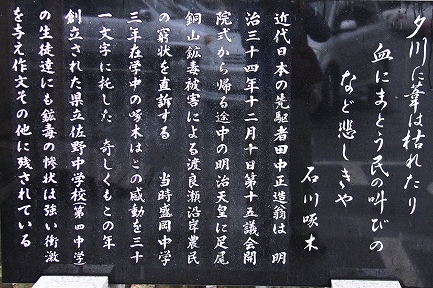 夕川に葦は枯れたり
血にまとう民の叫びの
など悲しきや
石川啄木
近代日本の先駆者田中正造翁は 明
治三十四年十二月十日第十五議会開
院式から帰る途中の明治天皇に足尾
銅山鉱毒被害による渡良瀬沿岸農民
の窮状を直訴する 当時盛岡中学
三年在学中の啄木はこの感動を三十
一文字に托した 奇しくもこの年
創立された県立佐野中学校(第四中学)
の生徒達にも鉱毒の惨状は強い衝激
を与え作文その他に残されている